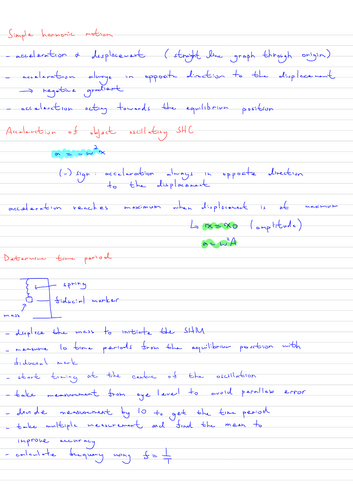 Simple harmonic motion
- acceleration α displacement (straight line graph through origin)
- acceleration always in opposite direction to the displacement
→ negative gradient
- acceleration acting towards the equilibrium position
Acceleration of object oscillating SHC
a = -ω²x
(-) sign: acceleration always in opposite direction
to the displacement
acceleration reaches maximum when displacement is at maximum
↳ x = x₀ (amplitude)
a = ω²A
Determine time period
spring
fiducial marker
mass
- displace the mass to initiate the SHM
- measure 10 time periods from the equilibrium position with
fiducial mark
- start timing at the centre of the oscillation
- take measurement from eye level to avoid parallax error
- divide measurement by 10 to get the time period
- take multiple measurement and find the mean to
improve accuracy
- calculate frequency using f = 1/T